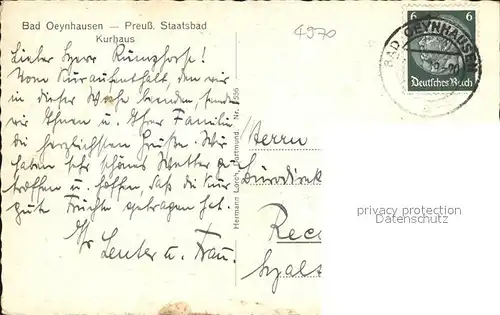 Bad Oeynhausen — Preuß. Staatsbad
Kurhaus
4970
6 6
BAD OEYNHAUSEN
Deutsches Reich
Lieber Herr
Vom Kuraufenthalt, den wir
in dieser Woche beenden, senden
wir Ihnen u. Ihrer Familie
die herzlichsten Grüße. Wir
haben sehr schönes Wetter ge
troffen u. hoffen, daß die Kur
gute Früchte getragen hat.
Ihr
u. Frau.
Hermann Lorch, Dortmund. Nr.
Herrn
Bürodirek
privacy protection
Datenschutz